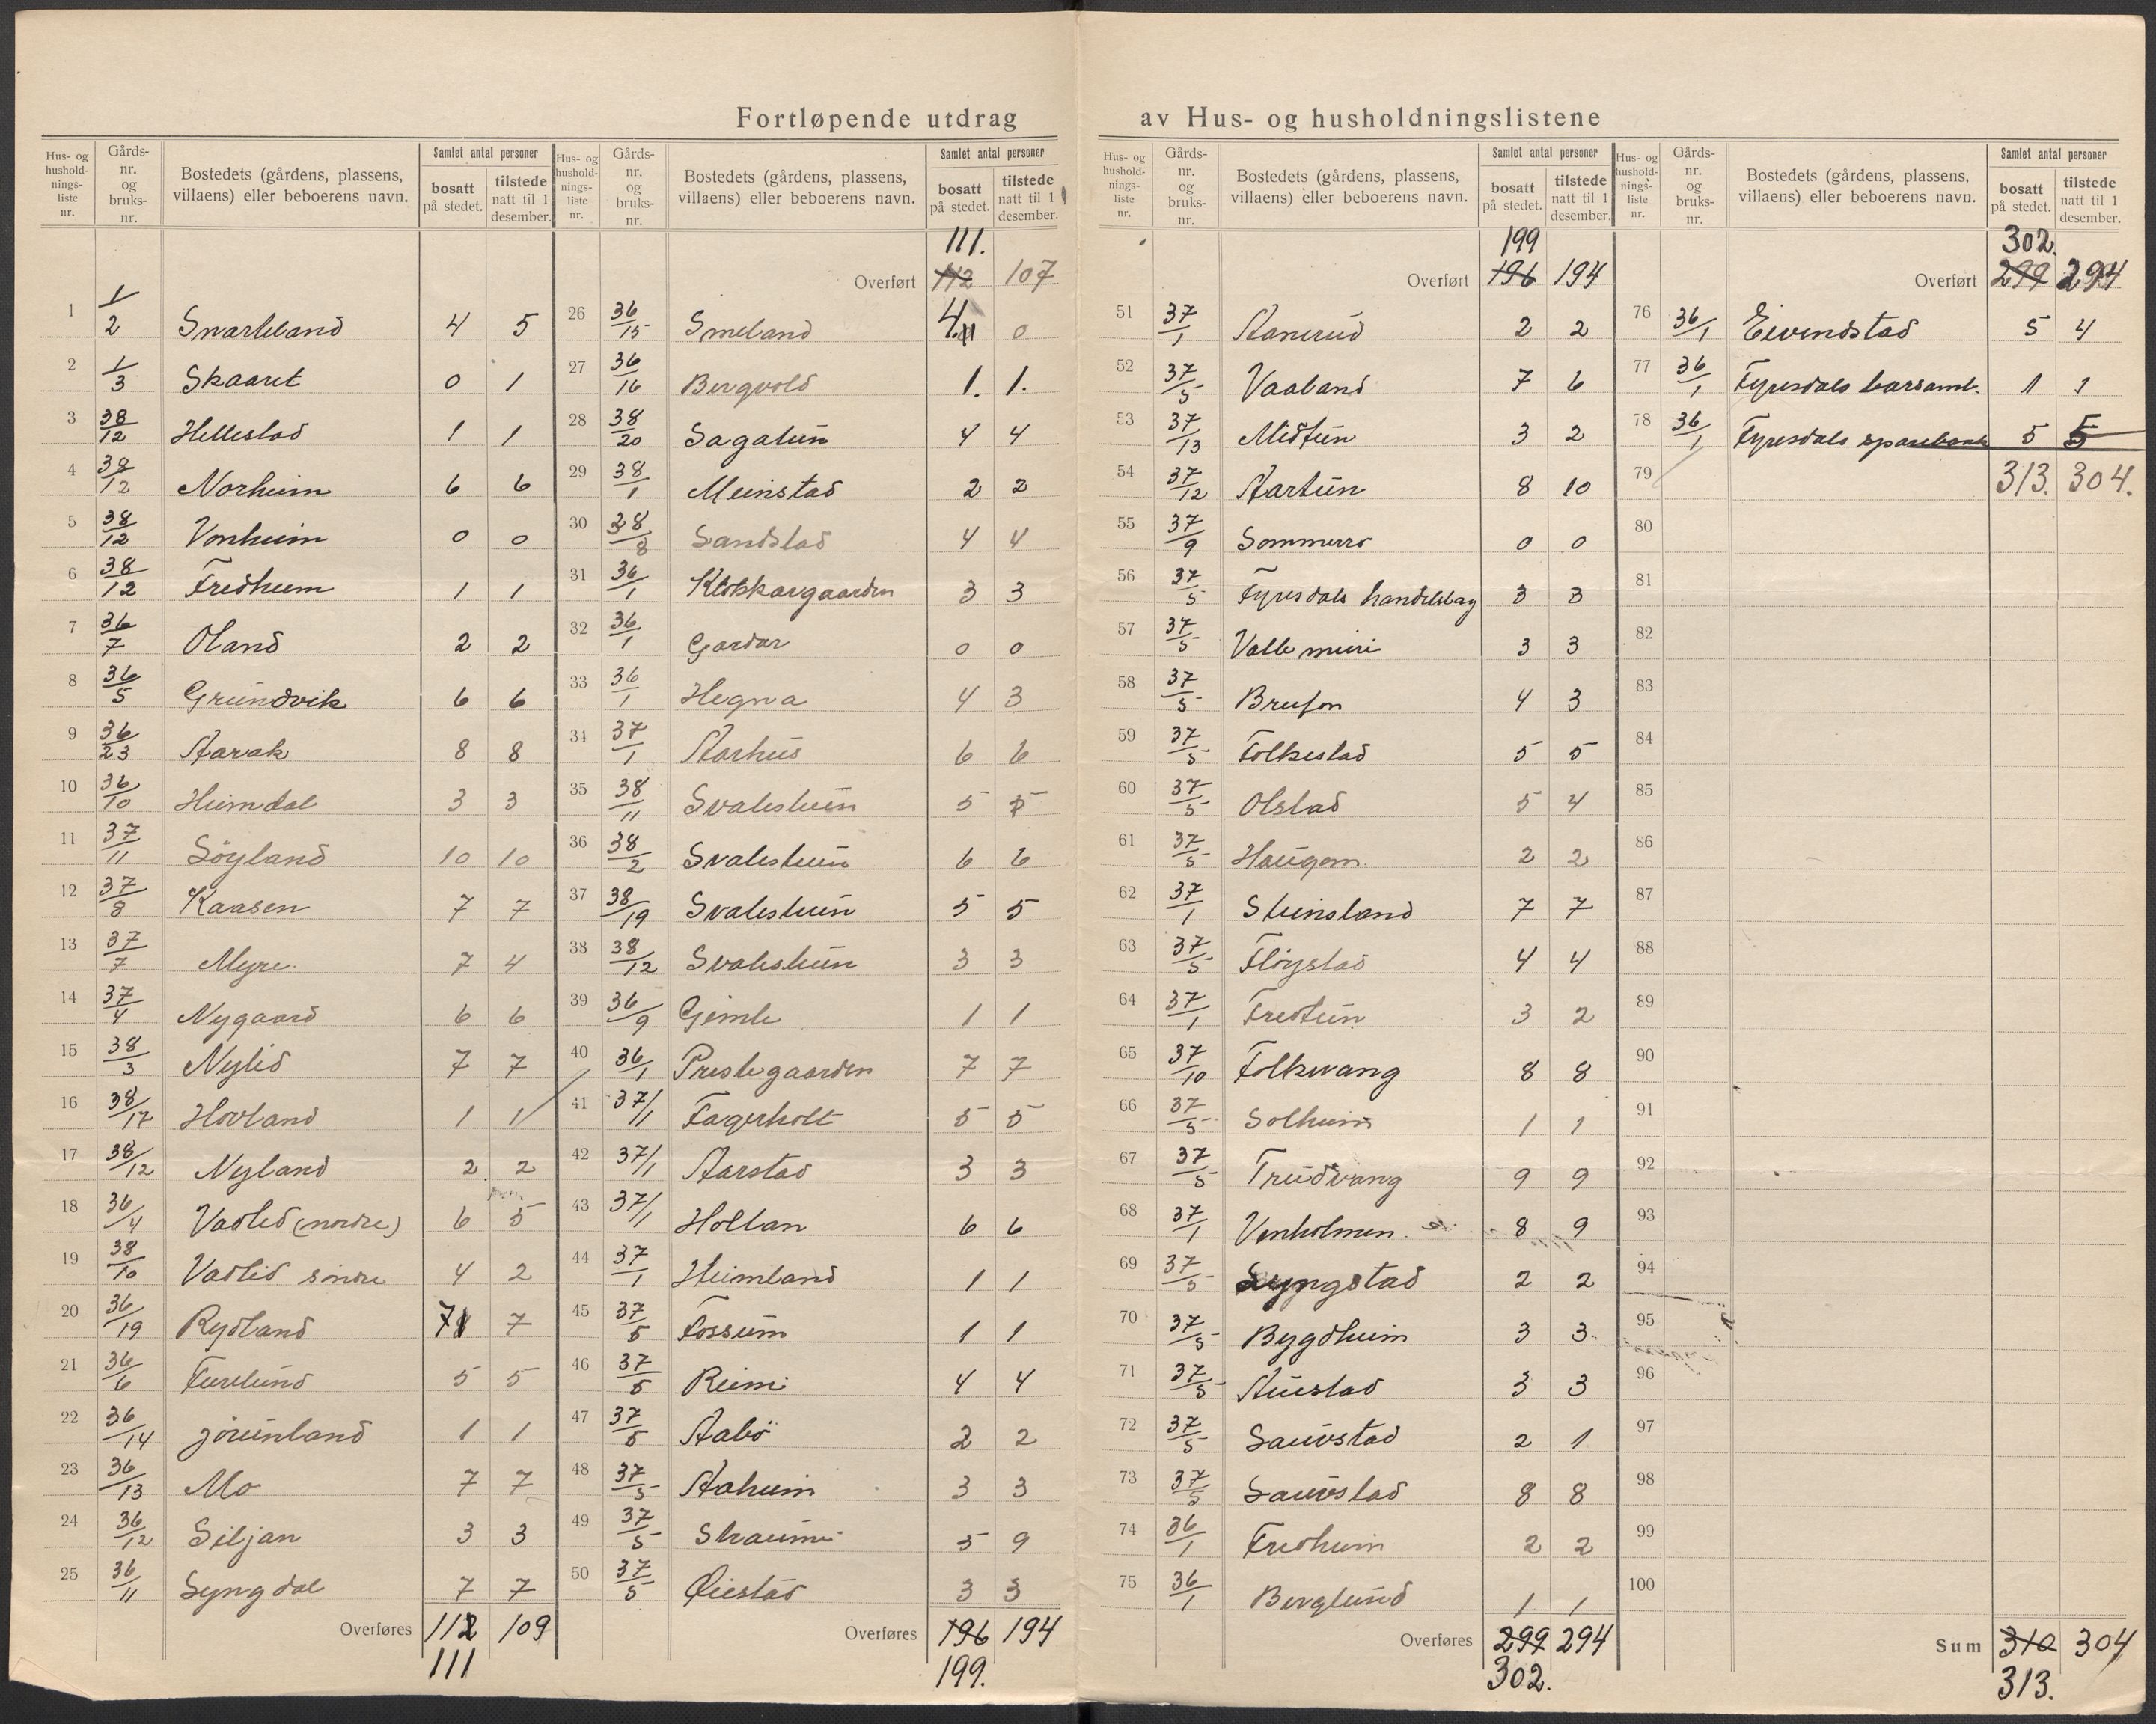 Fortløpende utdrag av Hus- og husholdningslistene
Hus- og hushold-nings-liste nr. | Gårds-nr. og bruks-nr. | Bostedets (gårdens, plassens, villaens) eller beboerens navn. | Samlet antal personer | bosatt på stedet. | tilstede natt til 1 desember.
1 1/2 Snarteland 4 5
2 1/3 Skaaret 0 1
3 38/12 Hellestad 1 1
4 38/12 Norheim 6 6
5 38/12 Vonheim 0 0
6 38/12 Fredheim 1 1
7 36/7 Oland 2 2
8 36/5 Grundvik 6 6
9 36/23 Aarak 8 8
10 36/10 Heimdal 3 3
11 37/11 Söyland 10 10
12 37/8 Kaasen 7 7
13 37/7 Myre. 7 4
14 37/4 Nygaard 6 6
15 38/3 Nylid 7 7
16 38/17 Hovland 1 1
17 38/12 Nyland 2 2
18 36/4 Vadlid (nordre) 6 5
19 38/10 Vadlid sindre 4 2
20 36/19 Rydland 7 7
21 36/6 Furelund 5 5
22 36/14 Jörunland 1 1
23 36/13 Mo 7 7
24 36/12 Siljan 3 3
25 36/11 Lyngdal 7 7
Overføres 112 109
111
Hus- og hushold-nings-liste nr. | Gårds-nr. og bruks-nr. | Bostedets (gårdens, plassens, villaens) eller beboerens navn. | Samlet antal personer | bosatt på stedet. | tilstede natt til 1 desember.
111.
Overført 112 107
26 36/15 Smeland 4. 0
27 36/16 Bergvold 1. 1.
28 38/20 Sagatun 4 4
29 38/1 Meinstad 2 2
30 38/8 Sandstad 4 4
31 36/1 Klokkargaarden 3 3
32 36/1 Gardar 0 0
33 36/1 Hegna 4 3
34 37/1 Aarhus 6 6
35 38/11 Svalestuen 5 5
36 38/2 Svalestuen 6 6
37 38/19 Svalestuen 5 5
38 38/12 Svalestuen 3 3
39 36/9 Gimle 1 1
40 36/1 Prestegaarden 7 7
41 37/1 Fagerholt 5 5
42 37/1 Aarstad 3 3
43 37/1 Holtan 6 6
44 37/1 Heimland 1 1
45 37/5 Fossum 1 1
46 37/5 Reimi 4 4
47 37/5 Aabö 2 2
48 37/5 Aaheim 3 3
49 37/5 Straume 5 9
50 37/5 Øiestad 3 3
Overføres 196 194
199.
Hus- og hushold-nings-liste nr. | Gårds-nr. og bruks-nr. | Bostedets (gårdens, plassens, villaens) eller beboerens navn. | Samlet antal personer | bosatt på stedet. | tilstede natt til 1 desember.
199
Overført 196 194
51 37/1 Aanerud 2 2
52 37/5 Vaaland 7 6
53 37/13 Midtun 3 2
54 37/12 Aartun 8 10
55 37/9 Sommerro 0 0
56 37/5 Fyresdals handelslag 3 3
57 37/5 Valle 3 3
58 37/5 4 3
59 37/5 Folkestad 5 5
60 37/5 Olstad 5 4
61 37/5 Haugom. 2 2
62 37/1 Steinsland 7 7
63 37/5 Flöystad 4 4
64 37/1 Fredtun 3 2
65 37/10 Folkvang 8 8
66 37/5 Solheim 1 1
67 37/5 Trudvang 9 9
68 37/1 Venholmen. 8 9
69 37/5 Lyngstad 2 2
70 37/5 Bygdheim 3 3
71 37/5 Austad 3 3
72 37/5 Sauvstad 2 1
73 37/5 Sauvstad 8 8
74 36/1 Fredheim 2 2
75 36/1 Berglund 1 1
Overføres 299 294
302.
Hus- og hushold-nings-liste nr. | Gårds-nr. og bruks-nr. | Bostedets (gårdens, plassens, villaens) eller beboerens navn. | Samlet antal personer | bosatt på stedet. | tilstede natt til 1 desember.
302.
Overført 299 294
76 36/1 Eivindstad 5 4
77 36/1 Fyresdals 1 1
78 36/1 Fyresdals sparebank 5 5
79 313. 304.
80
81
82
83
84
85
86
87
88
89
90
91
92
93
94
95
96
97
98
99
100
Sum 310 304
313.